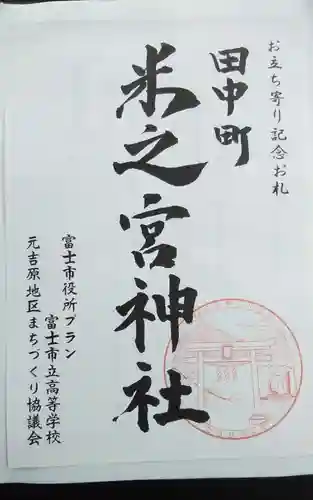 お立ち寄り記念お札
田中町
米之宮神社
富士市役所プラン
富士市立高等学校
元吉原地区まちづくり協議会